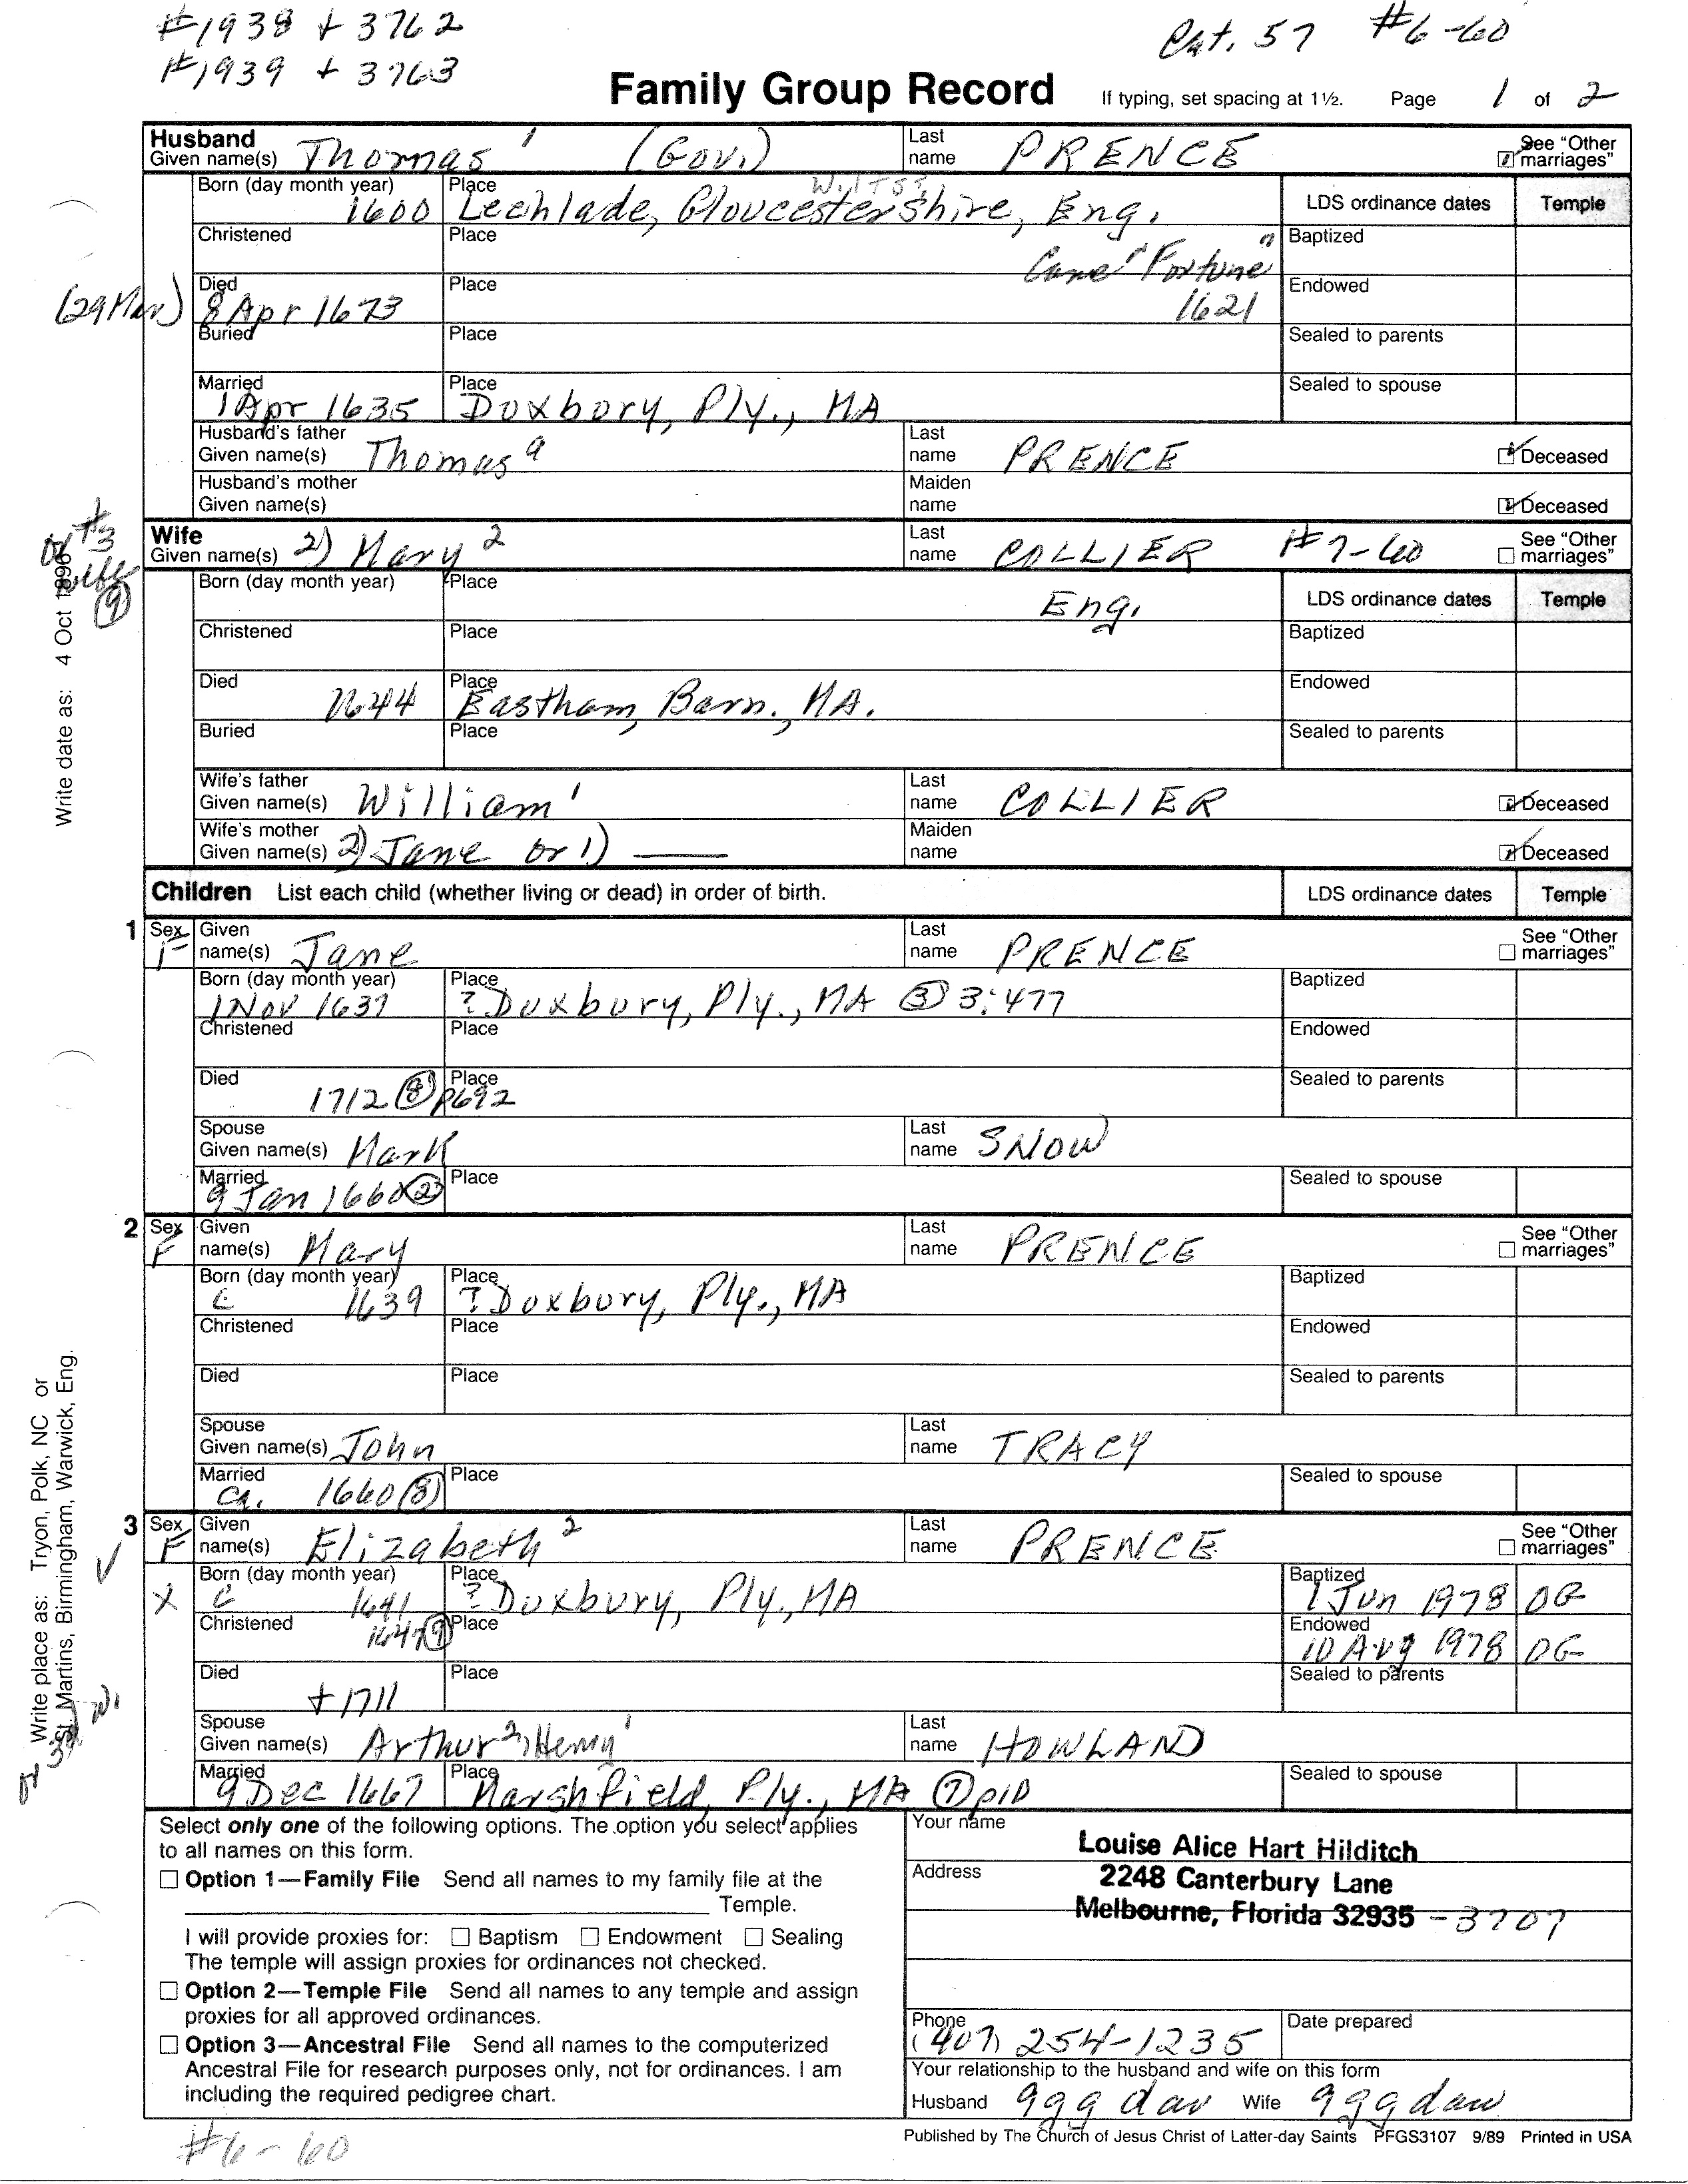 #1938 + 3762
#1939 + 3763
Cat. 57 #6-60
Family Group Record If typing, set spacing at 1½. Page 1 of 2
Husband
Given name(s) Thomas 1 (Gov.) Last name PRENCE See "Other marriages"
Born (day month year) 1600 Place Lechlade, Gloucestershire, Eng. Wiltss. LDS ordinance dates Temple
Christened Place Baptized
Came "Fortune" 1621
(29 Mar) Died 8 Apr 1673 Place Endowed
Buried Place Sealed to parents
Married 1 Apr 1635 Place Duxbury, Ply., MA Sealed to spouse
Husband's father Given name(s) Thomas a Last name PRENCE Deceased
Husband's mother Given name(s) Maiden name Deceased
or #3 wife (9)
Wife
Given name(s) 2) Mary 2 Last name COLLIER #7-60 See "Other marriages"
Born (day month year) Place Eng. LDS ordinance dates Temple
Christened Place Baptized
Died 1644 Place Eastham, Barn., MA. Endowed
Buried Place Sealed to parents
Wife's father Given name(s) William 1 Last name COLLIER Deceased
Wife's mother Given name(s) 2) Jane or 1) —— Maiden name Deceased
Write date as: 4 Oct 1896
Children List each child (whether living or dead) in order of birth. LDS ordinance dates Temple
1 Sex F Given name(s) Jane Last name PRENCE See "Other marriages"
Born (day month year) 1 Nov 1637 Place ? Duxbury, Ply., MA (3) 3:477 Baptized
Christened Place Endowed
Died 1712 (8) p692 Place Sealed to parents
Spouse Given name(s) Mark Last name SNOW
Married 9 Jan 1660 (23) Place Sealed to spouse
2 Sex F Given name(s) Mary Last name PRENCE See "Other marriages"
Born (day month year) c 1639 Place ? Duxbury, Ply., MA Baptized
Christened Place Endowed
Died Place Sealed to parents
Spouse Given name(s) John Last name TRACY
Married ca. 1660 (8) Place Sealed to spouse
3 Sex F Given name(s) Elizabeth 2 Last name PRENCE See "Other marriages"
X Born (day month year) c 1641 Place ? Duxbury, Ply., MA Baptized 1 Jun 1978 OG
Christened 1647 (9) Place Endowed 10 Aug 1978 OG
Died +1711 Place Sealed to parents
Spouse Given name(s) Arthur 2, Henry 1 Last name HOWLAND
Married 9 Dec 1667 Place Marshfield, Ply., MA (7) p10 Sealed to spouse
Write place as: Tryon, Polk, NC or
St. Martins, Birmingham, Warwick, Eng.
or 3d w.
Select only one of the following options. The option you select applies
to all names on this form.
Option 1—Family File Send all names to my family file at the
Temple.
I will provide proxies for: Baptism Endowment Sealing
The temple will assign proxies for ordinances not checked.
Option 2—Temple File Send all names to any temple and assign
proxies for all approved ordinances.
Option 3—Ancestral File Send all names to the computerized
Ancestral File for research purposes only, not for ordinances. I am
including the required pedigree chart.
Your name Louise Alice Hart Hilditch
Address 2248 Canterbury Lane
Melbourne, Florida 32935 -3707
Phone (407) 254-1235 Date prepared
Your relationship to the husband and wife on this form
Husband ggg dau Wife ggg dau
Published by The Church of Jesus Christ of Latter-day Saints PFGS3107 9/89 Printed in USA
#6-60